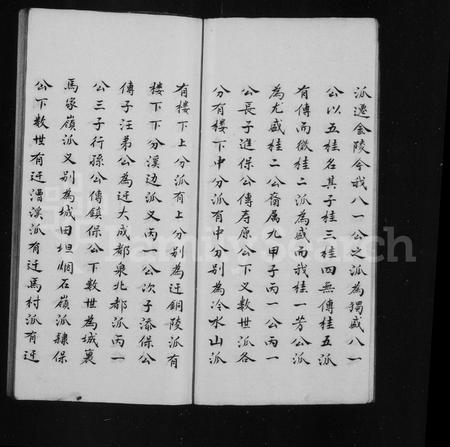 派遷金陵今我八一公之派為獨盛八一
公以五桂名其子桂三桂四無傳桂五派
有傳而微桂二派為盛而我桂一芳公派
為尤盛桂二公裔属九甲子丙一公丙一
公長子進保公傳存原公下又數世派各
分有楼下中分派有中分別為冷水山派
有楼下上分派有上分別為迁銅陵派有
楼下下分漢边派又丙一公次子添保公
傳子汪弟公為迁大成都泉北都派丙一
公三子行孫公傳鎮保公下數世為城裏
馬家嶺派又別為城田坦烟石嶺派隸保
公下數世有迁漕溪派有迁馬村派有迁
FamilySearch